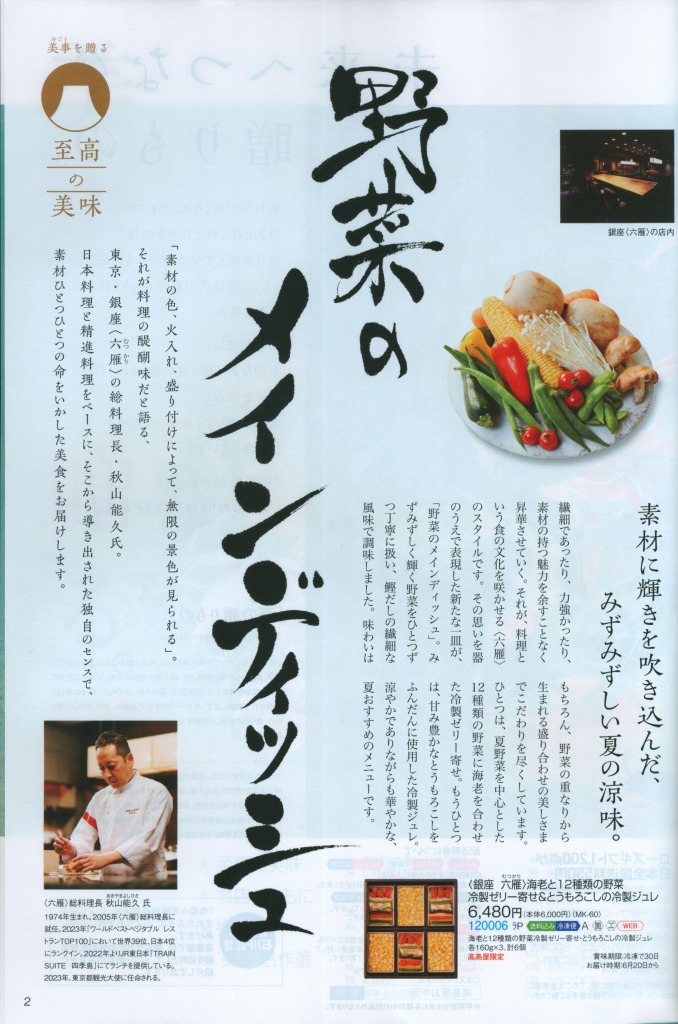 美事を贈る
みごと
至高
の
美味
野菜の
メインディッシュ
銀座〈六雁〉の店内
「素材の色、火入れ、盛り付けによって、無限の景色が見られる」。
それが料理の醍醐味だと語る、
東京・銀座〈六雁〉の総料理長・秋山能久氏。
むつかり
日本料理と精進料理をベースに、そこから導き出された独自のセンスで、
素材ひとつひとつの命をいかした美食をお届けします。
素材に輝きを吹き込んだ、
みずみずしい夏の涼味。
繊細であったり、力強かったり、
素材の持つ魅力を余すことなく
昇華させていく。それが、料理と
いう食の文化を咲かせる〈六雁〉
のスタイルです。その思いを器
のうえで表現した新たな一皿が、
「野菜のメインディッシュ」。み
ずみずしく輝く野菜をひとつず
つ丁寧に扱い、鰹だしの繊細な
風味で調味しました。味わいは
もちろん、野菜の重なりから
生まれる盛り合わせの美しさま
でこだわりを尽くしています。
ひとつは、夏野菜を中心とした
12種類の野菜に海老を合わせ
た冷製ゼリー寄せ。もうひとつ
は、甘み豊かなとうもろこしを
ふんだんに使用した冷製ジュレ。
涼やかでありながらも華やかな、
夏おすすめのメニューです。
〈六雁〉総料理長 秋山能久 氏
あきやまよしひさ
1974年生まれ。2005年〈六雁〉総料理長に
就任。2023年「ワールドベストベジタブル レス
トランTOP100」において世界39位、日本4位
にランクイン。2022年よりJR東日本「TRAIN
SUITE 四季島」にてランチを提供している。
2023年、東京都観光大使に任命される。
むつかり
〈銀座 六雁〉海老と12種類の野菜
冷製ゼリー寄せ&とうもろこしの冷製ジュレ
6,480円(本体6,000円)〈MK-60〉
120006 ラP 送料込み 冷凍便 A WEB
海老と12種類の野菜冷製ゼリー寄せ・とうもろこしの冷製ジュレ
各160g×3、計6個
高島屋限定
賞味期限:冷凍で30日
お届け時期:6月20日から
2